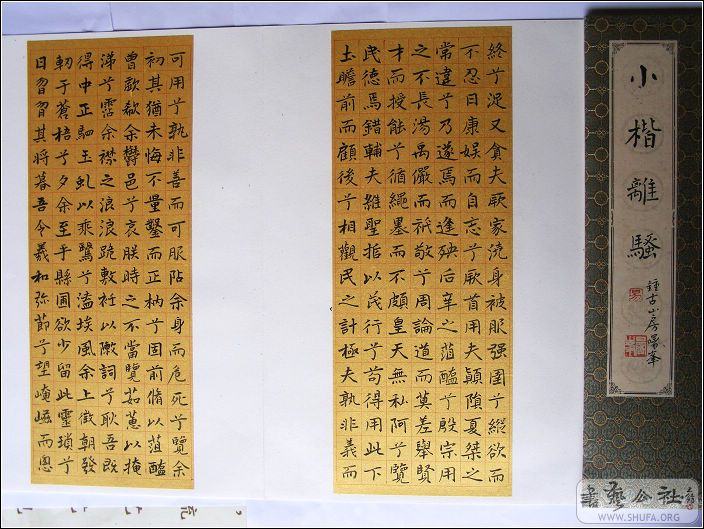 小楷離騷
終兮浞又貪夫厥家澆身被服强圉兮縱欲而
不忍日康娛而自忘兮厥首用夫顛隕夏桀之
常違兮乃遂焉而逢殃后辛之菹醢兮殷宗用
之不長湯禹儼而祗敬兮周論道而莫差舉賢
才而授能兮循繩墨而不頗皇天無私阿兮覽
民德焉錯輔夫維聖哲以茂行兮苟得用此下
土瞻前而顧後兮相觀民之計極夫孰非義而
可用兮孰非善而可服阽余身而危死兮覽余
初其猶未悔不量鑿而正枘兮固前脩以菹醢
曾歔欷余鬱邑兮哀朕時之不當覽茹蕙以掩
涕兮霑余襟之浪浪跪敷衽以陳詞兮耿吾既
得中正駟玉虬以乘鷖兮溘埃風余上徵朝發
軔于蒼梧兮夕余至乎縣圃欲少留此靈瑣兮
日曶曶其將暮吾令羲和弥節兮望崦嵫而
書藝公社
WWW.SHUFA.ORG